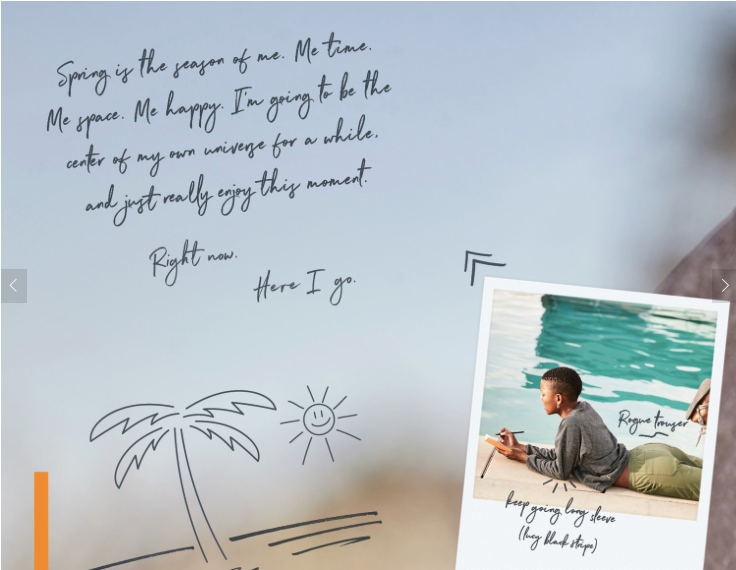 Spring is the season of me. Me time.
Me space. Me happy. I'm going to be the
center of my own universe for a while,
and just really enjoy this moment.
Right now.
Here I go.
Rogue trouser
keep going long sleeve
(lucy black stripe)